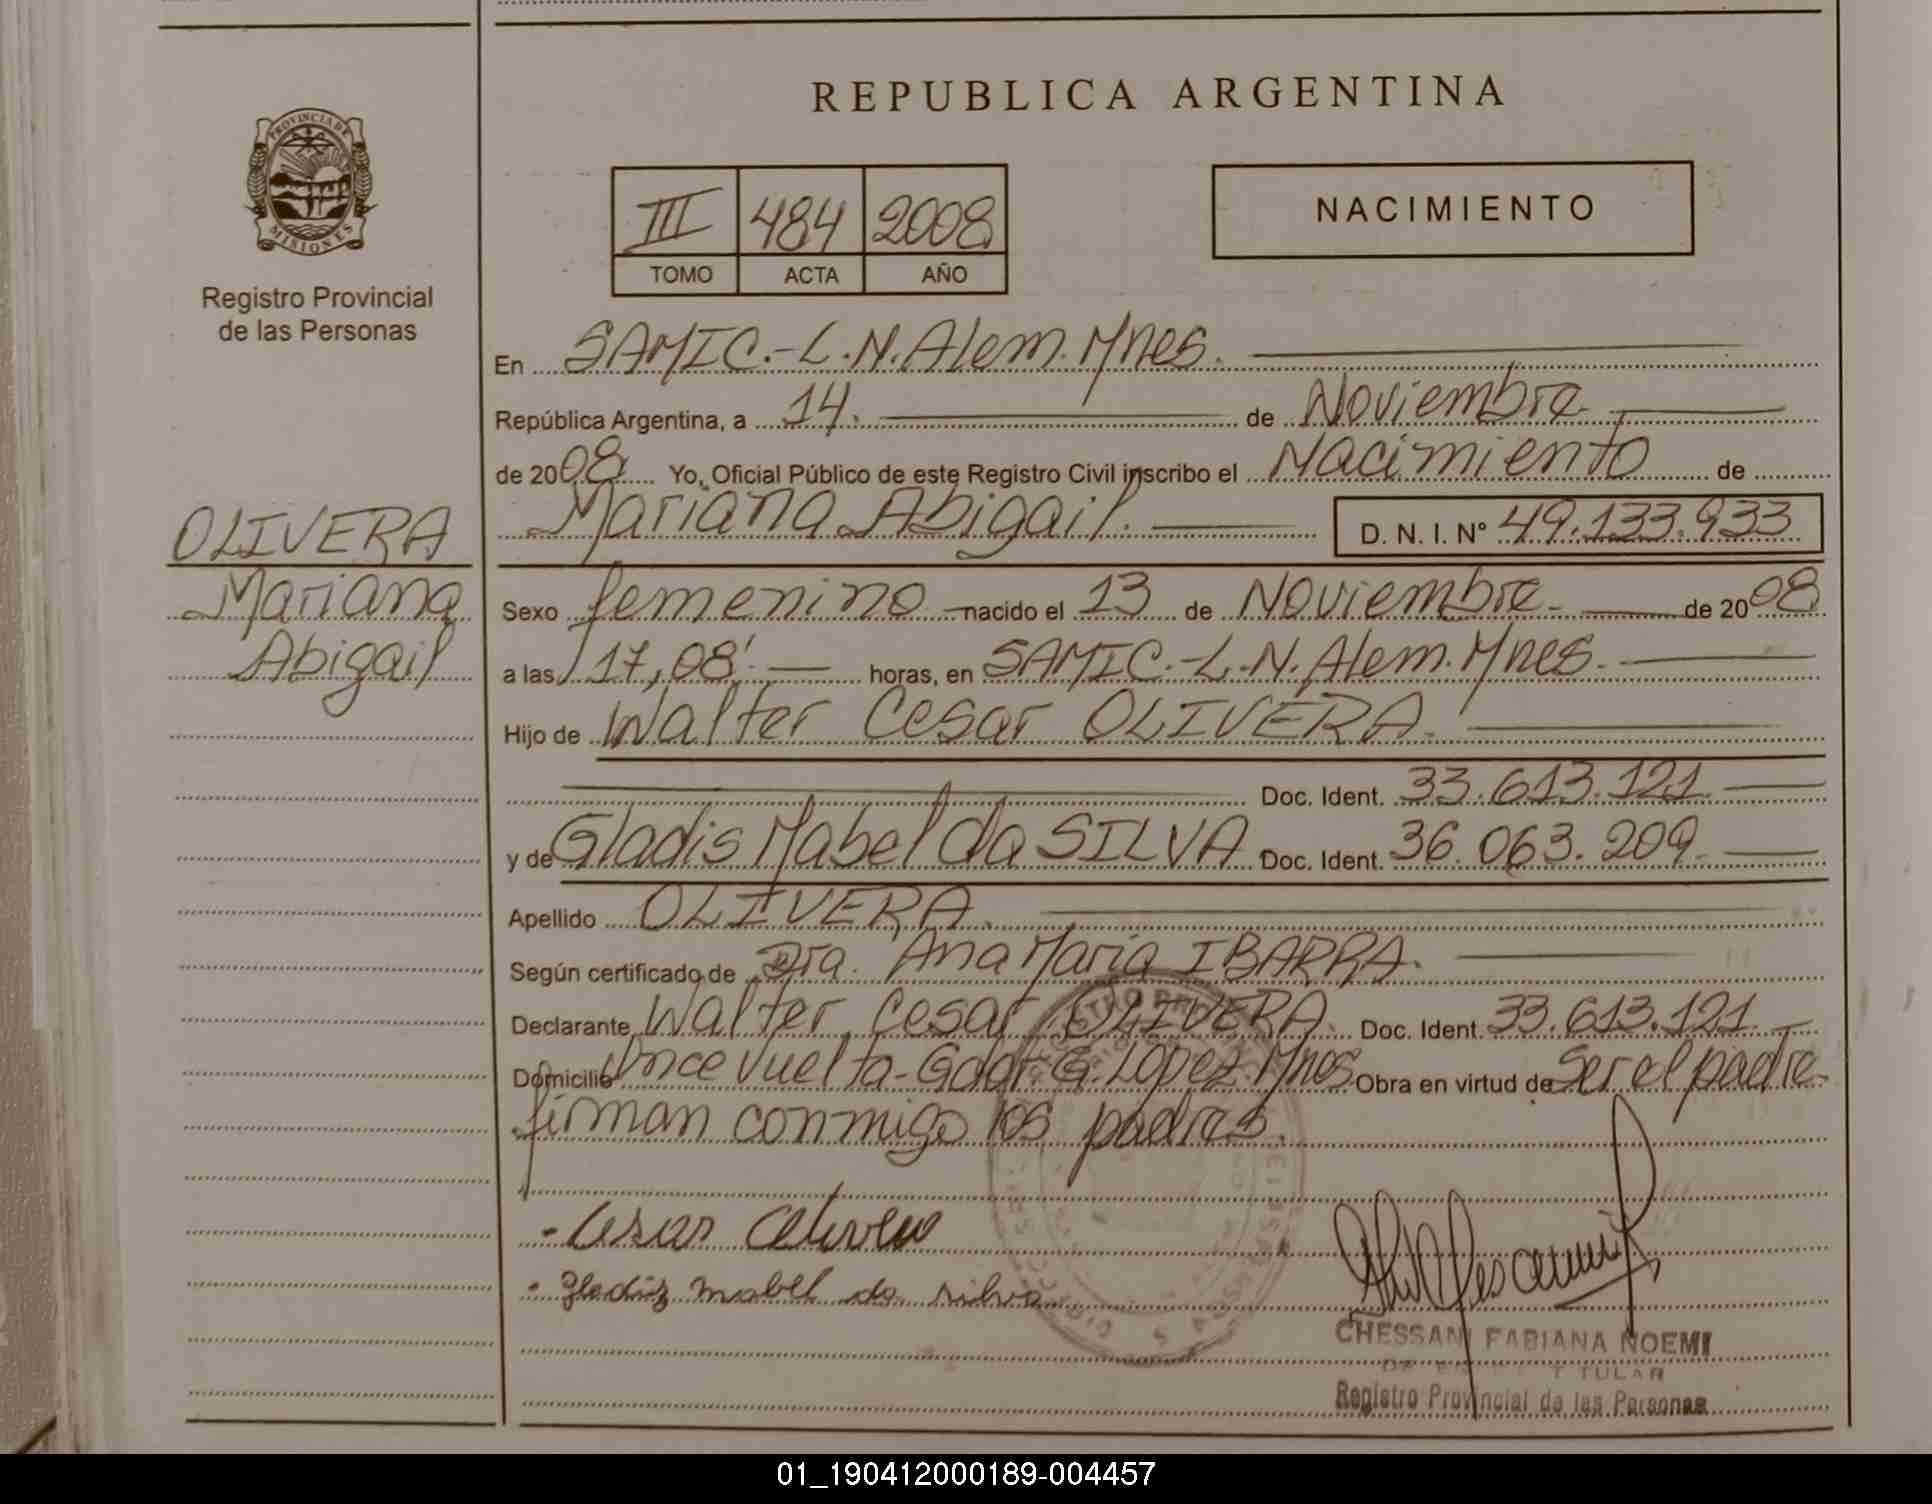 REPUBLICA ARGENTINA
PROVINCIA DE MISIONES
Registro Provincial
de las Personas
III 484 2008
TOMO ACTA AÑO
NACIMIENTO
OLIVERA
Mariana
Abigail
En SAMIC.-L.N.Alem.Mnes.
República Argentina, a 14. de Noviembre
de 2008 Yo, Oficial Público de este Registro Civil inscribo el Nacimiento de
Mariana Abigail. D. N. I. Nº 49.133.933
Sexo femenino nacido el 13 de Noviembre de 2008
a las 17,08' horas, en SAMIC.-L.N.Alem.Mnes.
Hijo de Walter Cesar OLIVERA.
Doc. Ident. 33.613.121.
y de Gladis Mabel da SILVA Doc. Ident. 36.063.209.
Apellido OLIVERA.
Según certificado de Dra. Ana Maria IBARRA.
Declarante Walter Cesar OLIVERA. Doc. Ident. 33.613.121.
Domicilio Once Vuelta-Gdor G.Lopez.Mnes Obra en virtud de Ser el padre
firman conmigo los padres.
- Cesar Olivera
- Gladiz mabel da silva
CHESSANI FABIANA NOEMI
TITULAR
Registro Provincial de las Personas
01_190412000189-004457